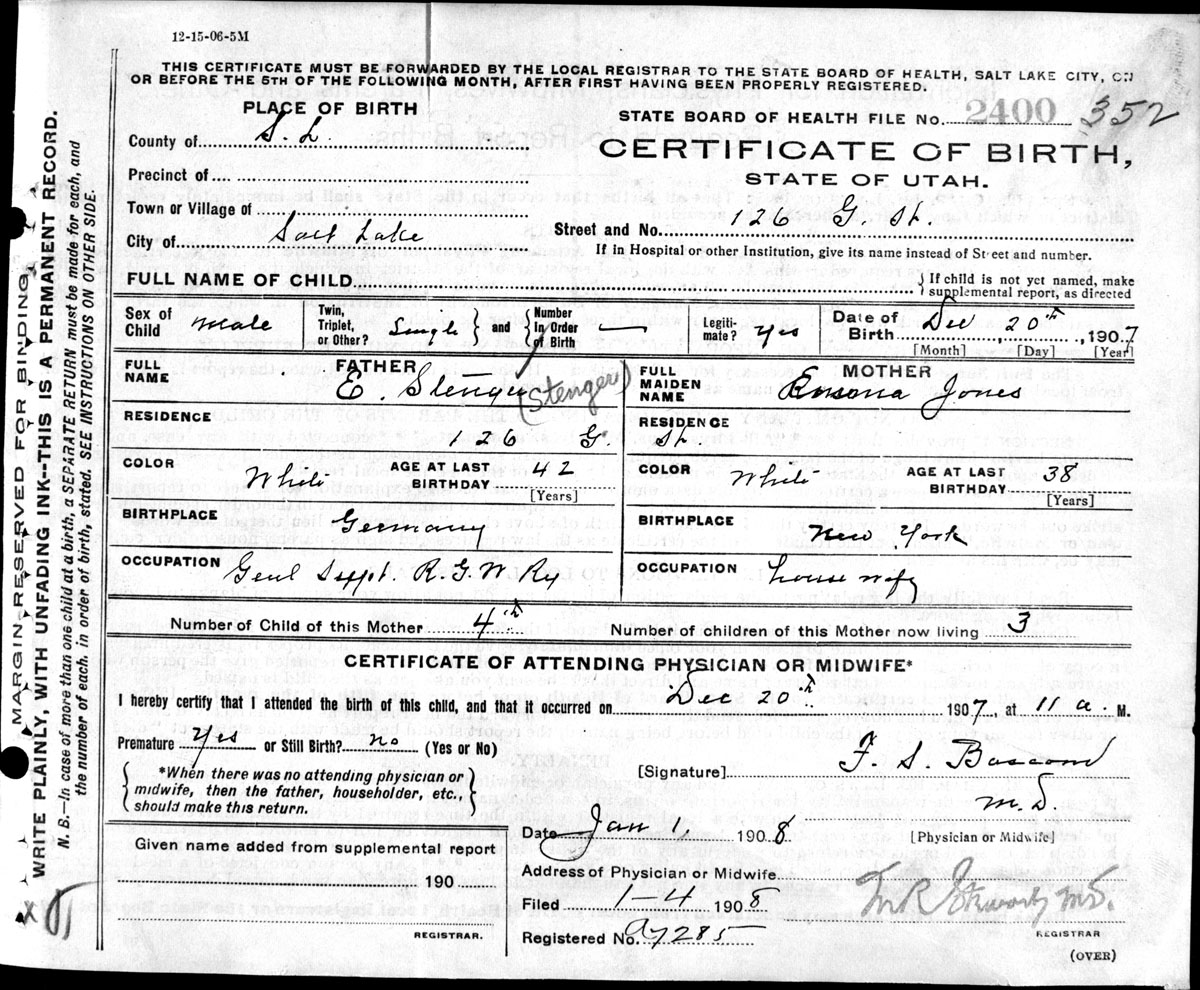 12-15-06-5M
THIS CERTIFICATE MUST BE FORWARDED BY THE LOCAL REGISTRAR TO THE STATE BOARD OF HEALTH, SALT LAKE CITY, ON
OR BEFORE THE 5TH OF THE FOLLOWING MONTH, AFTER FIRST HAVING BEEN PROPERLY REGISTERED.
PLACE OF BIRTH
STATE BOARD OF HEALTH FILE No. 2400 352
County of S. L.
CERTIFICATE OF BIRTH,
Precinct of
STATE OF UTAH.
Town or Village of
Street and No. 126 G. St.
City of Salt Lake
If in Hospital or other Institution, give its name instead of Street and number.
FULL NAME OF CHILD
{ If child is not yet named, make
supplemental report, as directed
Sex of Child male
Twin, Triplet, or Other? Single } and { Number In Order of Birth —
Legiti- mate? yes
Date of Birth Dec 20th, 1907
[Month] [Day] [Year]
FATHER
FULL NAME E. Stenger (Stenger)
RESIDENCE 126 G. St
COLOR White AGE AT LAST BIRTHDAY 42
[Years]
BIRTHPLACE Germany
OCCUPATION Genl Supt. R.G.W. Ry
MOTHER
FULL MAIDEN NAME Jones
RESIDENCE
COLOR White AGE AT LAST BIRTHDAY 38
[Years]
BIRTHPLACE New York
OCCUPATION house wife
Number of Child of this Mother 4th
Number of children of this Mother now living 3
CERTIFICATE OF ATTENDING PHYSICIAN OR MIDWIFE*
I hereby certify that I attended the birth of this child, and that it occurred on Dec 20th 1907 at 11 a. M.
Premature yes or Still Birth? no (Yes or No)
{ *When there was no attending physician or
midwife, then the father, householder, etc.,
should make this return. }
[Signature] F. S. Bascom
M.D.
[Physician or Midwife]
Date Jan 11 1908
Given name added from supplemental report
190
REGISTRAR.
Address of Physician or Midwife
Filed 1-4 1908
Registered No. 285
M.D.
REGISTRAR
(OVER)
MARGIN RESERVED FOR BINDING
WRITE PLAINLY, WITH UNFADING INK--THIS IS A PERMANENT RECORD.
N. B.—In case of more than one child at a birth, a SEPARATE RETURN must be made for each, and
the number of each, in order of birth, stated. SEE INSTRUCTIONS ON OTHER SIDE.